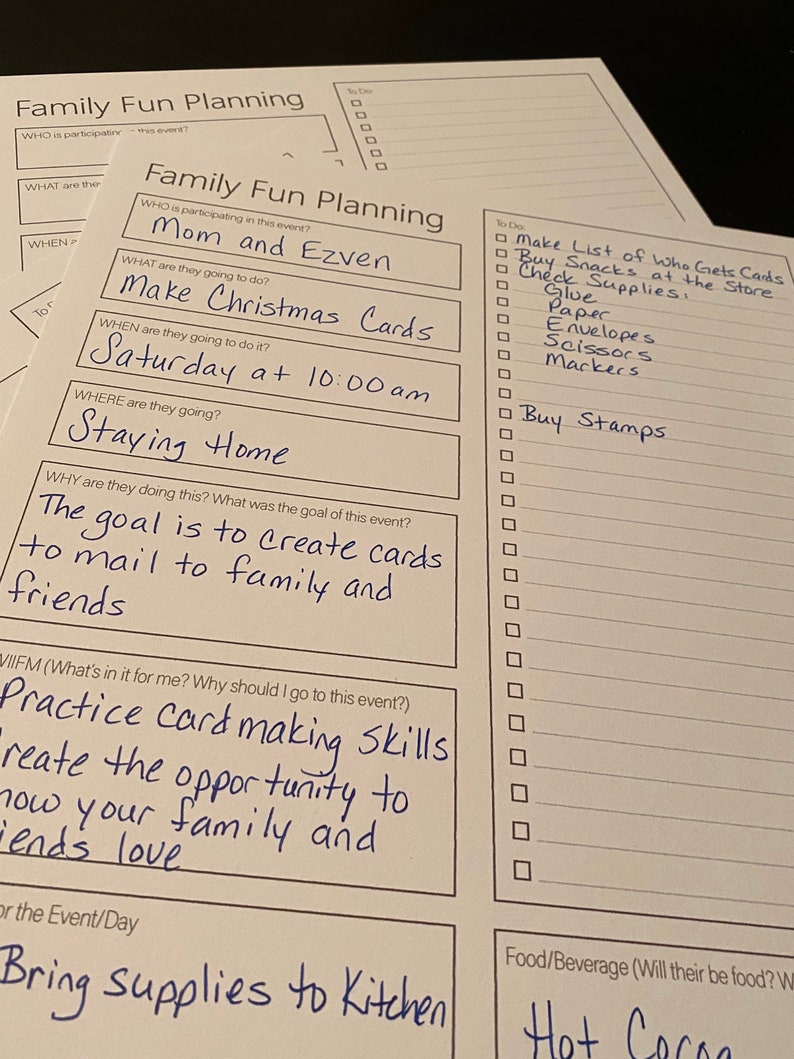 Family Fun Planning
WHO is participating this event?
WHAT are the
WHEN
To Do:
Family Fun Planning
WHO is participating in this event?
Mom and Ezven
WHAT are they going to do?
Make Christmas Cards
WHEN are they going to do it?
Saturday at 10:00am
WHERE are they going?
Staying Home
WHY are they doing this? What was the goal of this event?
The goal is to create cards
to mail to family and
friends
WIIFM (What's in it for me? Why should I go to this event?)
Practice cardmaking skills
reate the opportunity to
how your family and
iends love
or the Event/Day
Bring supplies to Kitchen
To Do:
Make List of Who Gets Cards
Buy Snacks at the Store
Check Supplies:
Glue
Paper
Envelopes
Scissors
Markers
Buy Stamps
Food/Beverage (Will their be food? W
Hot Cocoa